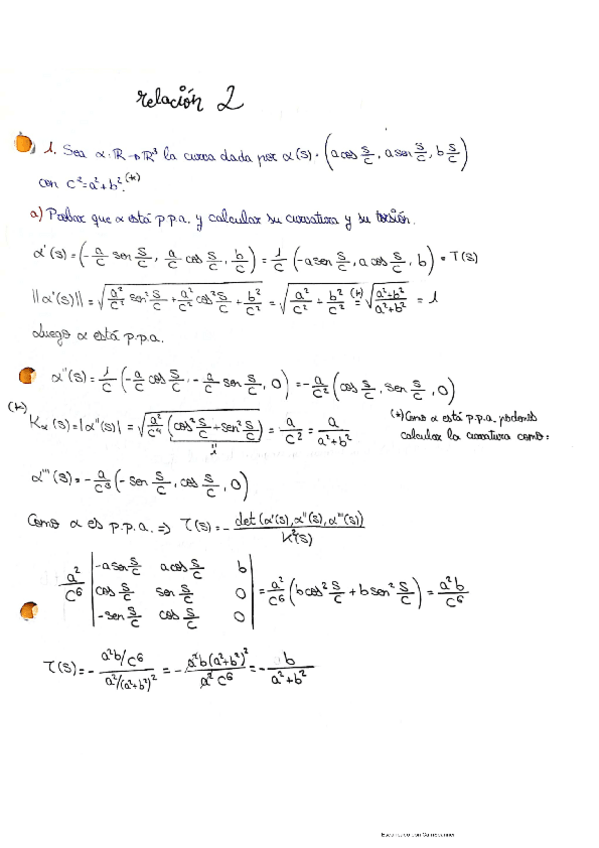 relación 2
1. Sea α: ℝ → ℝ³ la curva dada por α(s) = (a cos s/c, a sen s/c, b s/c)
con c² = a² + b². (*)
a) Probar que α está p.p.a. y calcular su curvatura y su torsión.
α'(s) = (-a/c sen s/c, a/c cos s/c, b/c) = 1/c (-a sen s/c, a cos s/c, b) = T(s)
||α'(s)|| = √(a²/c² sen² s/c + a²/c² cos² s/c + b²/c²) = √(a²/c² + b²/c²) (*)= √((a²+b²)/(a²+b²)) = 1
Luego α está p.p.a.
α''(s) = 1/c (-a/c cos s/c, -a/c sen s/c, 0) = -a/c² (cos s/c, sen s/c, 0)
(*) Kα(s) = |α''(s)| = √(a²/c⁴ (cos² s/c + sen² s/c)) = a/c² = a/(a²+b²)
1
(*) Como α está p.p.a. podemos
calcular la curvatura como:
α'''(s) = -a/c³ (-sen s/c, cos s/c, 0)
Como α es p.p.a. ⇒ τ(s) = - det(α'(s), α''(s), α'''(s)) / K²(s)
a²/c⁶ | -a sen s/c  a cos s/c  b |
| cos s/c  sen s/c  0 | = a²/c⁶ (b cos² s/c + b sen² s/c) = a²b/c⁶
| -sen s/c  cos s/c  0 |
τ(s) = - (a²b/c⁶) / (a²/(a²+b²)²) = - a²b(a²+b²)² / a²c⁶ = - b/(a²+b²)